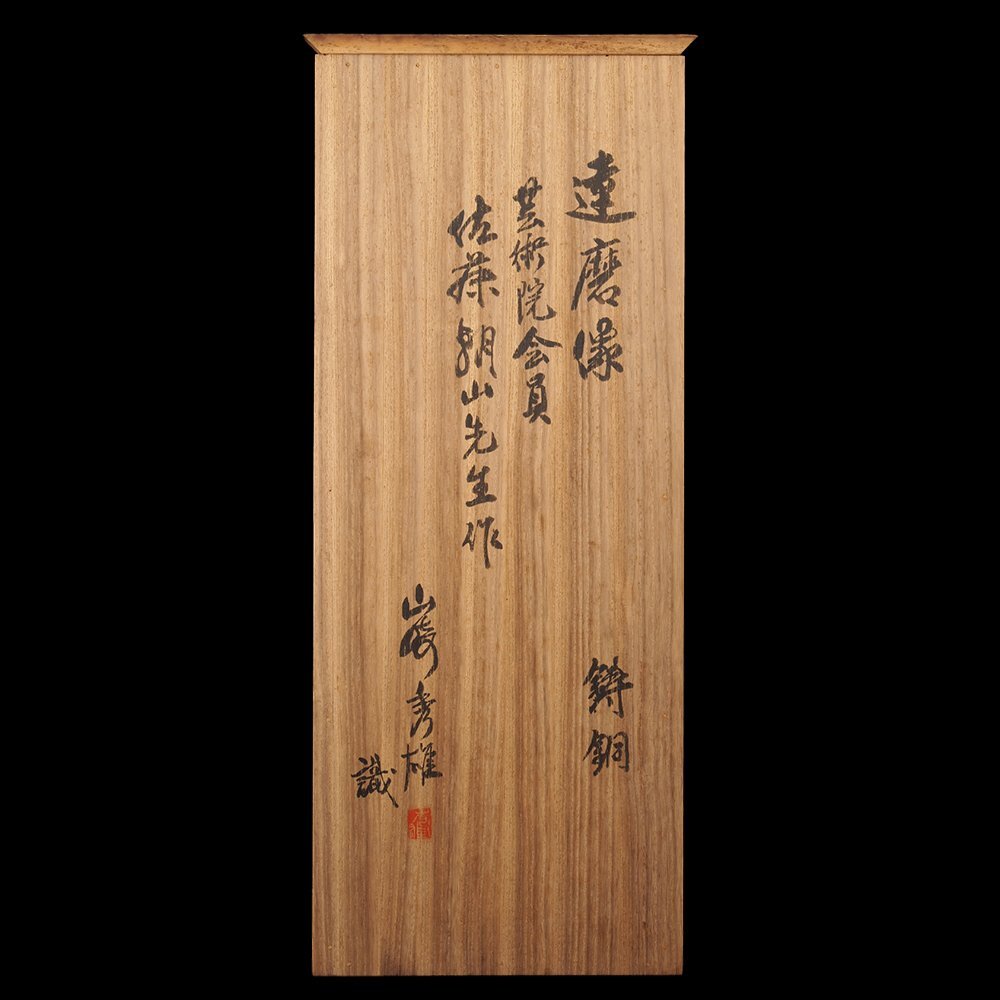 達磨像 鋳銅
芸術院会員
佐藤朝山先生作
山崎秀雄
識